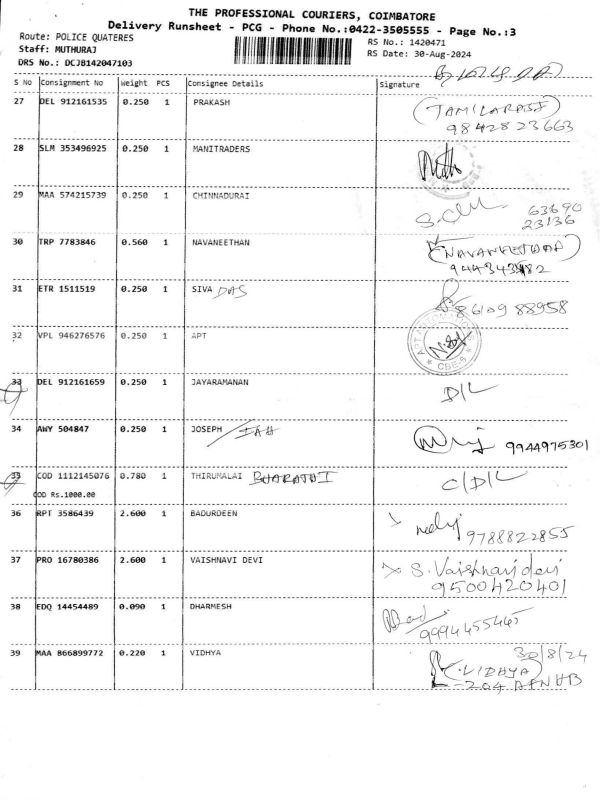 THE PROFESSIONAL COURIERS, COIMBATORE
Delivery Runsheet - PCG - Phone No.:0422-3505555 - Page No.:3
Route: POLICE QUATERES
Staff: MUTHURAJ
DRS No.: DCJB142047103
RS No.: 1420471
RS Date: 30-Aug-2024
S No Consignment No Weight PCS Consignee Details Signature
27 DEL 912161535 0.250 1 PRAKASH (TAMILARASI)
9842823663
28 SLM 353496925 0.250 1 MANITRADERS
29 MAA 574215739 0.250 1 CHINNADURAI 63690
23136
30 TRP 7783846 0.560 1 NAVANEETHAN
31 ETR 1511519 0.250 1 SIVA DAS 8610988958
32 VPL 946276576 0.250 1 APT
CBE-9
33 DEL 912161659 0.250 1 JAYARAMANAN D/L
34 AWY 504847 0.250 1 JOSEPH 9944975301
35 COD 1112145076 0.780 1 THIRUMALAI BHARATHI C/D/L
COD Rs.1000.00
36 RPT 3586439 2.600 1 BADURDEEN 9788822855
37 PRO 16780386 2.600 1 VAISHNAVI DEVI S. Vaishnavi devi
9500420401
38 EDQ 14454489 0.090 1 DHARMESH
9994455445
39 MAA 866899772 0.220 1 VIDHYA 30/8/24
(VIDHYA)